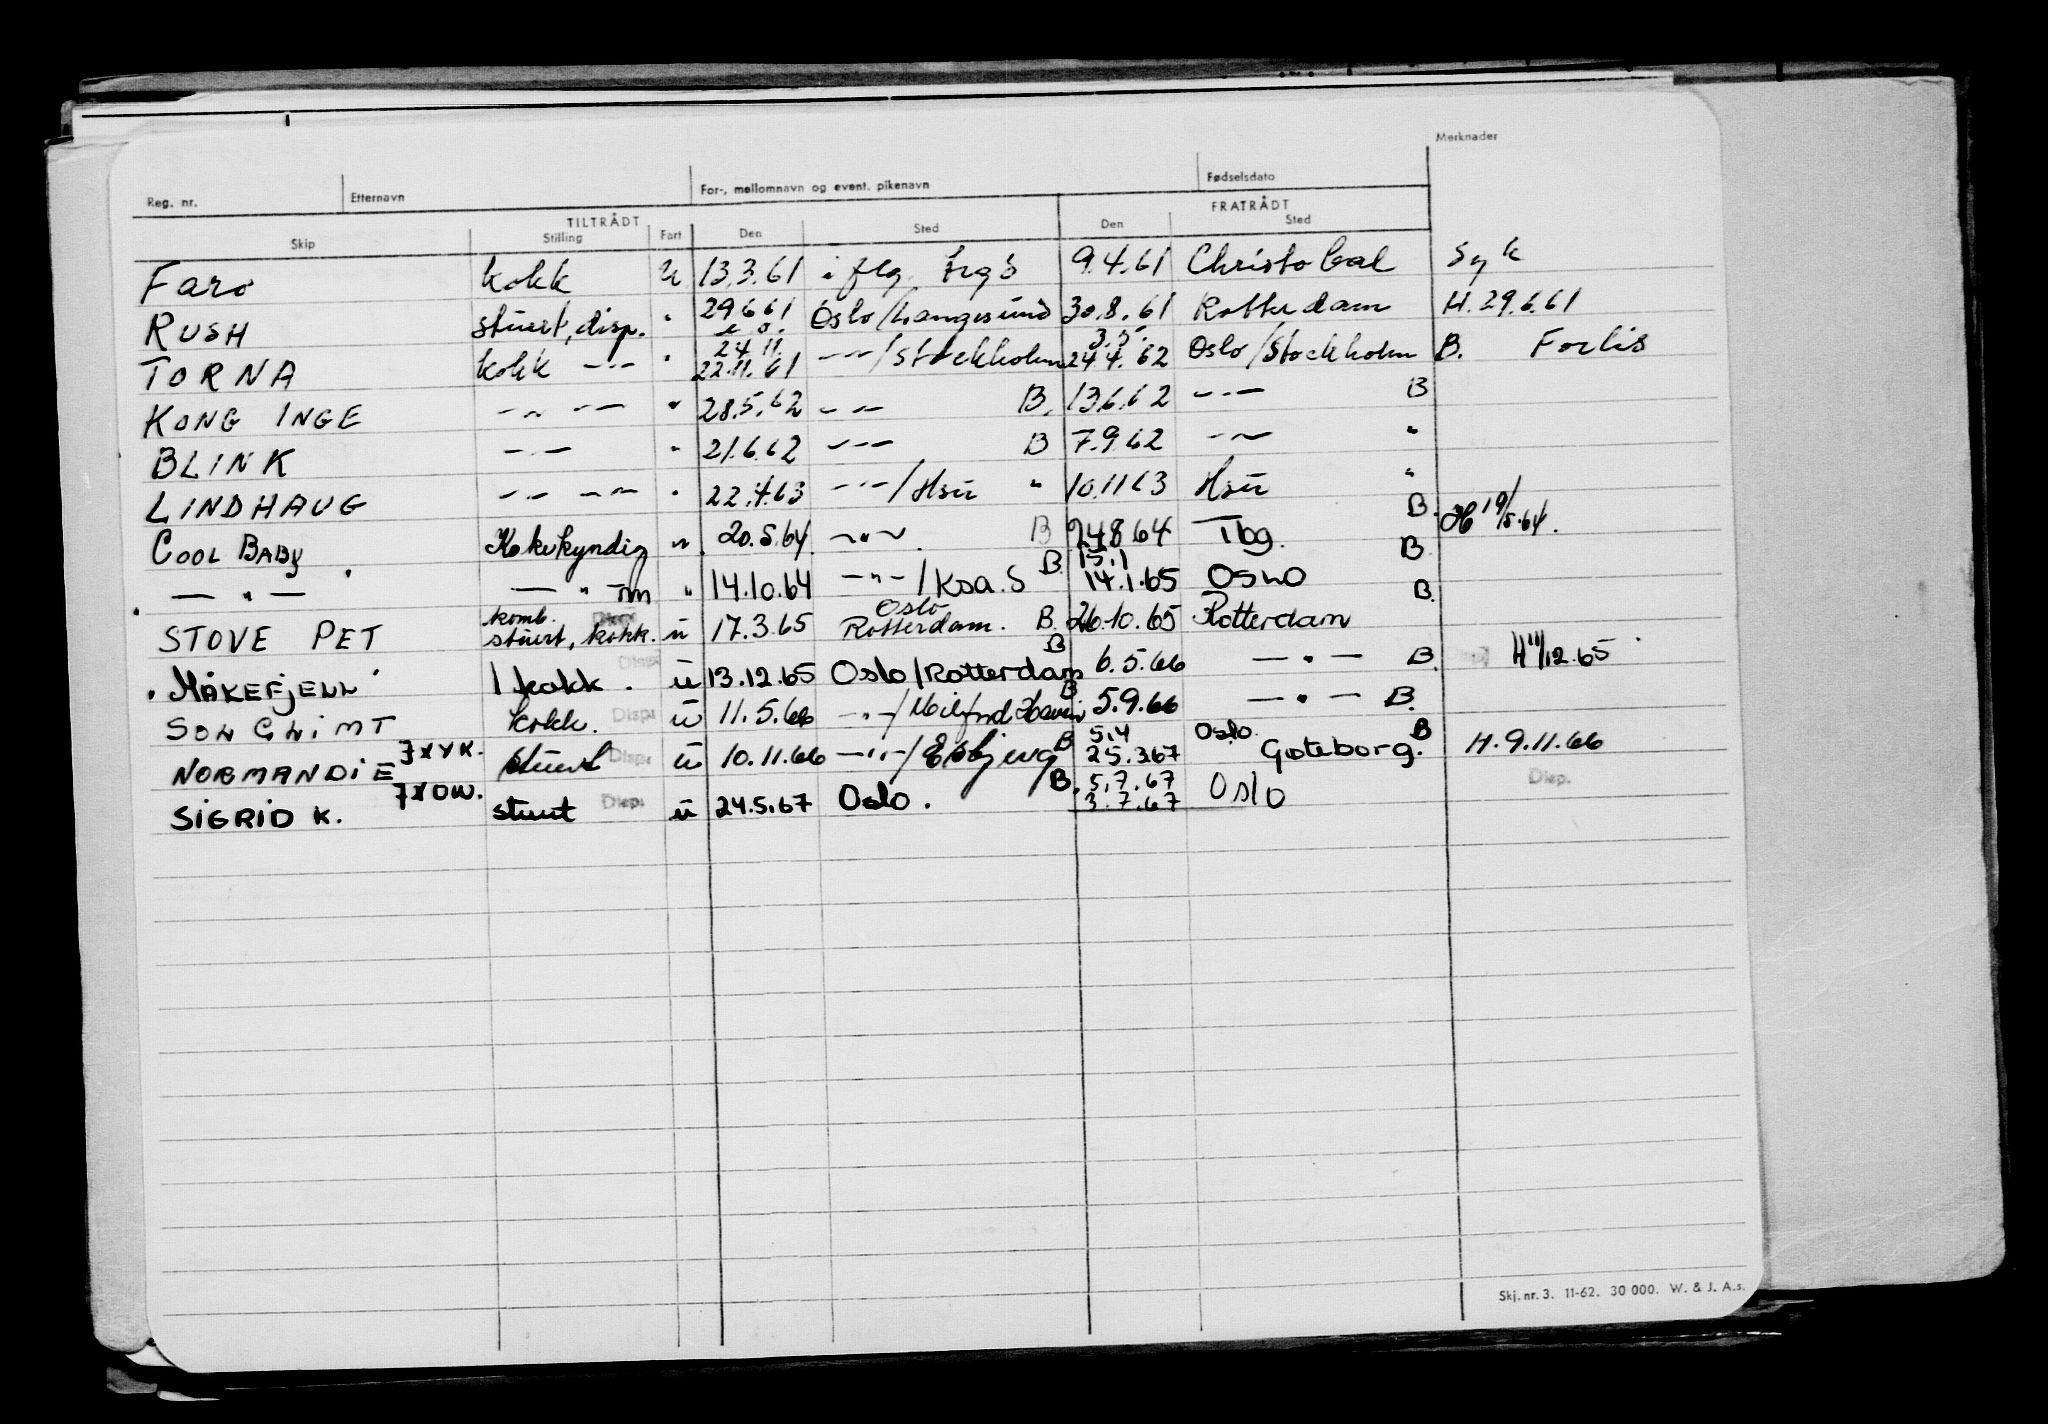 Merknader
Reg. nr. Etternavn For-, mellomnavn og event. pikenavn Fødselsdato
TILTRÅDT FRATRÅDT
Skip Stilling Fart Den Sted Den Sted
Faro kokk u 13.3.61 i flg. 9.4.61 Christobal Syk
RUSH stuert, disp. " 29.6.61 Oslo/Langesund 30.8.61 Rotterdam H. 29.6.61
24.11. 3.5.
TORNA kokk -"- " 22.11.61 -"-/Stockholm 24.4.62 Oslo/Stockholm B. Forlis
KONG INGE -"- -"- " 28.5.62 -"- B. 13.6.62 -"- B
BLINK -"- " 21.6.62 -"- B 7.9.62 -"- "
LINDHAUG -"- -"- " 22.4.63 -"-/Hsu " 10.11.63 Hsu "
COOL BABY Kokekyndig " 20.5.64 -"- B 24.8.64 Tbg. B. H 19/5.64.
15.1
— " — — " — " 14.10.64 -"-/Ksa. S B 14.1.65 OSLO B
komb. Disp. Oslo
STOVE PET stuert, kokk. u 17.3.65 Rotterdam. B. 26.10.65 Rotterdam B.
MÅKEFJELL 1 kokk. Disp. u 13.12.65 Oslo/Rotterdam B 6.5.66 — " — B. H 11/12.65
SONGLIMT kokk. Disp. u 11.5.66 -"-/Milford Haven B 5.9.66 — " — B.
JXYK. 5.4 Oslo
NORMANDIE stuert Disp. u 10.11.66 -"-/Esbjerg B 25.3.67 Gøteborg. B H. 9.11.66
JXOW. 5.7.67 Disp.
SIGRID K. stuert Disp. u 24.5.67 Oslo. B. 3.7.67 Oslo
Skj. nr. 3. 11-62. 30 000. W. & J. A.s.